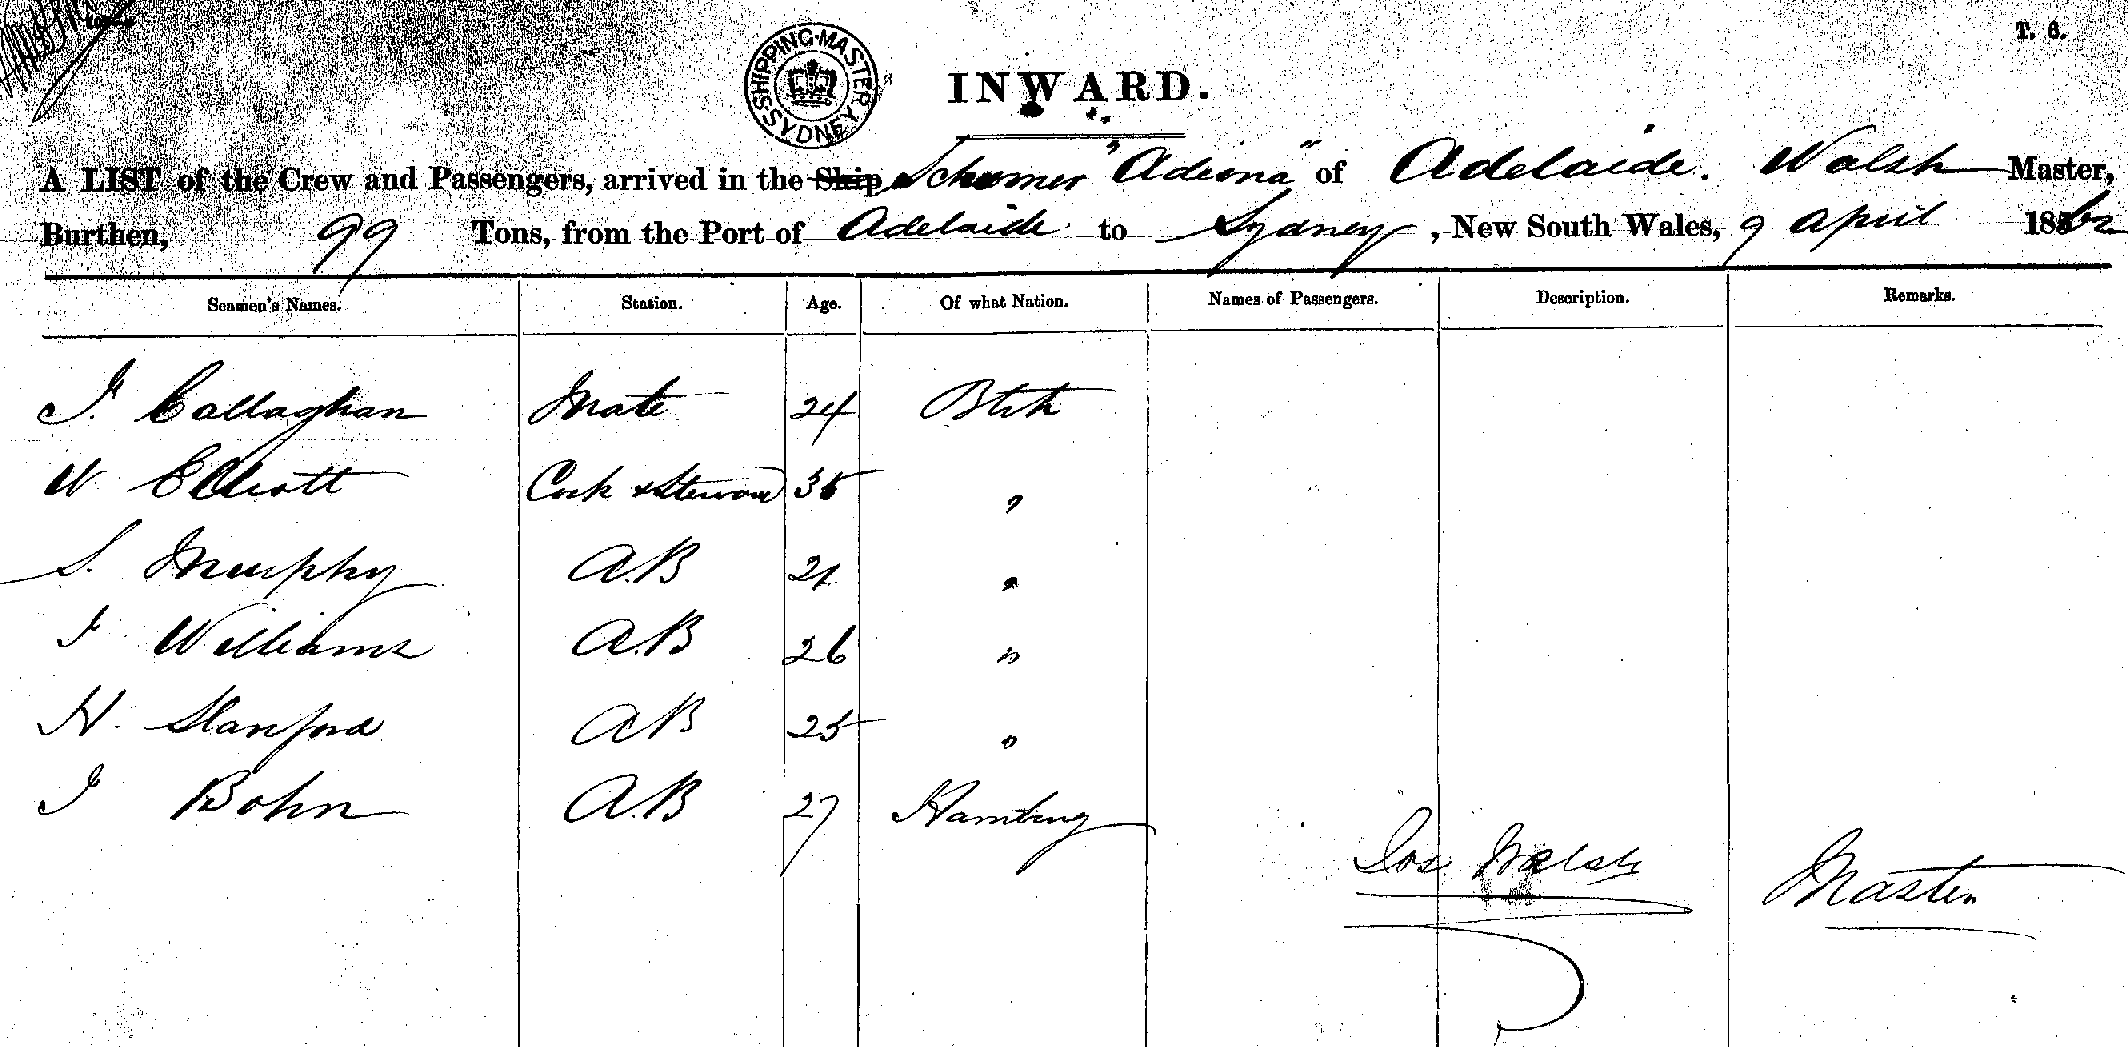 T. 6.
SHIPPING MASTER SYDNEY
INWARD.
A LIST of the Crew and Passengers, arrived in the Ship Schooner "Adeona" of Adelaide. Walsh Master,
Burthen, 99 Tons, from the Port of Adelaide to Sydney, New South Wales, 9 April 1862
Seamen's Names. Station. Age. Of what Nation. Names of Passengers. Description. Remarks.
J. Callaghan Mate 24 Btsh
W Elliott Cook & Steward 35 "
S. Murphy A.B 21 "
J Williams A.B 26 "
H. Stanford AB 25 "
J Bohn A.B 27 Hamburg
Jos Walsh Master